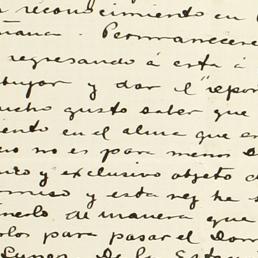 reconocimiento en
ñana. Permanecere
regresando á esta á
bujar y dar el "repor
ucho gusto saber que
iento en el alma que en
no es para menos
y exclusivo objeto
y esta vez he
de manera que
los para pasar el Dom
Lunes. De la Esta